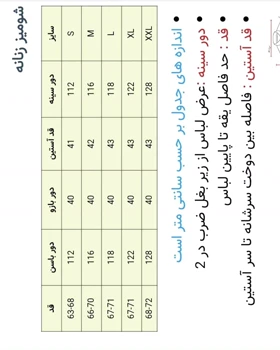 شومیز زنانه
سایز دور سینه قد آستین دور بازو دور باسن قد
S 112 41 40 112 63-68
M 116 42 40 116 66-70
L 118 43 40 118 67-71
XL 122 43 40 122 67-71
XXL 128 43 40 128 68-72
اندازه های جدول بر حسب سانتی متر است
دور سینه :عرض لباس از زیر بغل ضرب در 2
قد : حد فاصل یقه تا پایین لباس
قد آستین : فاصله بین دوخت سرشانه تا سر آستین